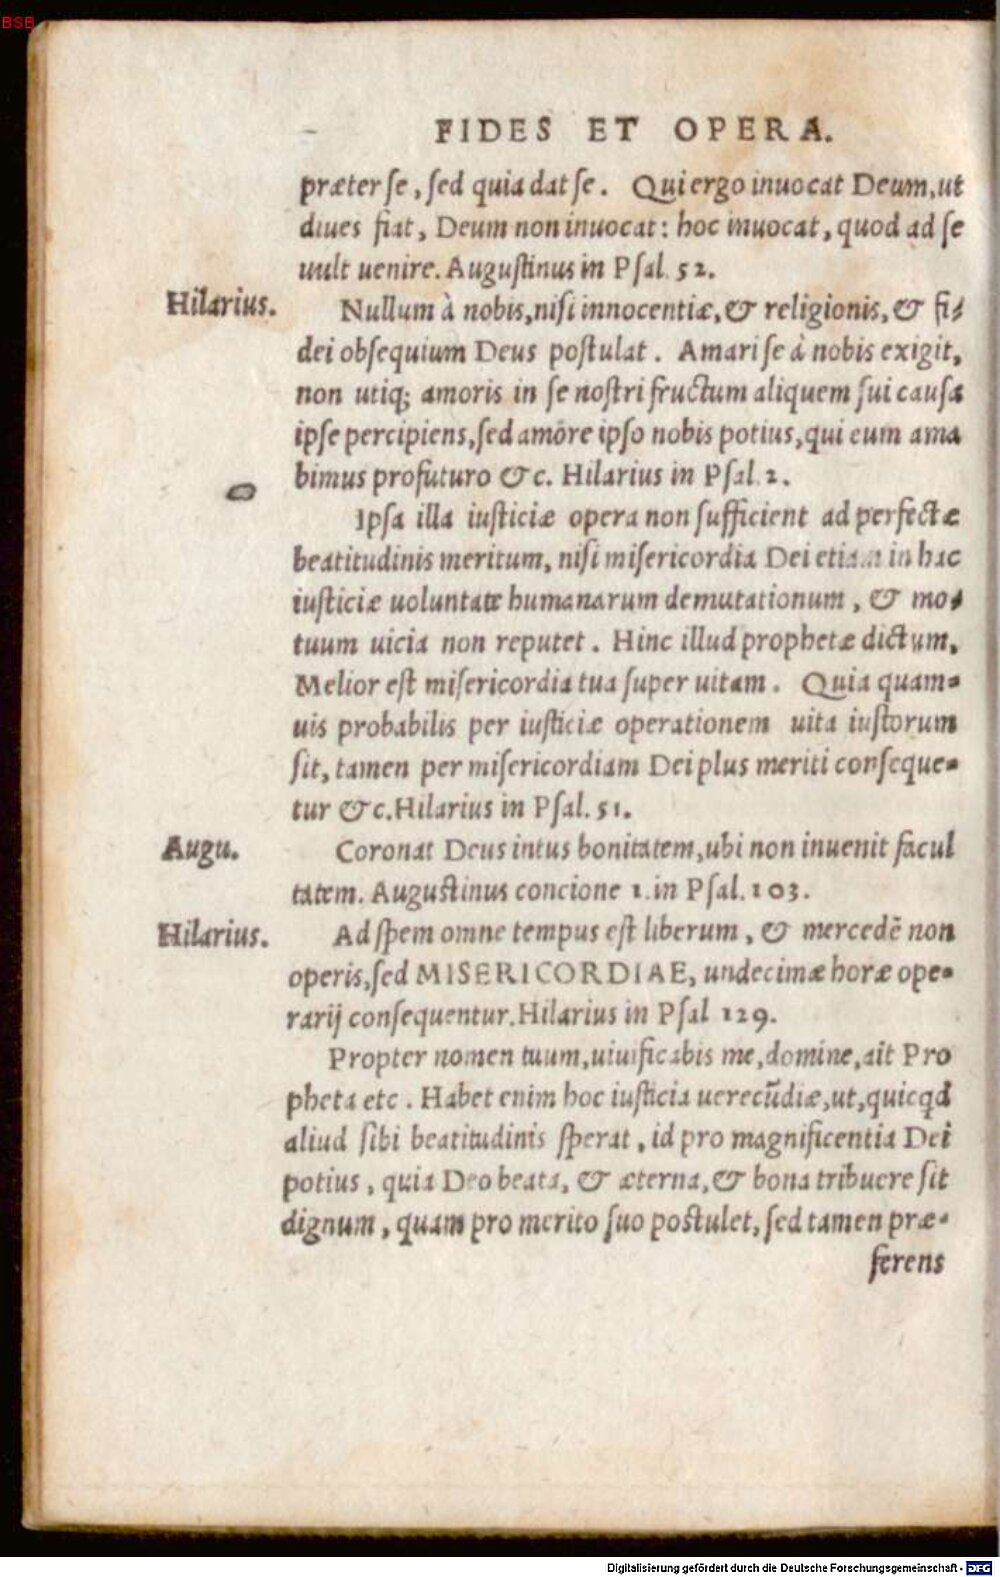 BSB
FIDES ET OPERA.
præter se, sed quia dat se. Qui ergo inuocat Deum, ut
diues fiat, Deum non inuocat: hoc inuocat, quod ad se
uult uenire. Augustinus in Psal. 52.
Hilarius.
Nullum à nobis, nisi innocentiæ, & religionis, & fi-
dei obsequium Deus postulat. Amari se à nobis exigit,
non utiq; amoris in se nostri fructum aliquem sui causa
ipse percipiens, sed amore ipso nobis potius, qui eum ama
bimus profuturo &c. Hilarius in Psal. 2.
Ipsa illa iusticiæ opera non sufficient ad perfectæ
beatitudinis meritum, nisi misericordia Dei etiam in hac
iusticiæ uoluntate humanarum demutationum, & mo-
tuum uicia non reputet. Hinc illud prophetæ dictum,
Melior est misericordia tua super uitam. Quia quam-
uis probabilis per iusticiæ operationem uita iustorum
sit, tamen per misericordiam Dei plus meriti conseque-
tur &c. Hilarius in Psal. 51.
Augu.
Coronat Deus intus bonitatem, ubi non inuenit facul
tatem. Augustinus concione 1. in Psal. 103.
Hilarius.
Ad spem omne tempus est liberum, & mercedē non
operis, sed MISERICORDIAE, undecimæ horæ ope-
rarij consequentur. Hilarius in Psal 129.
Propter nomen tuum, uiuificabis me, domine, ait Pro
pheta etc. Habet enim hoc iusticia uerecūdiæ, ut, quicqd
aliud sibi beatitudinis sperat, id pro magnificentia Dei
potius, quia Deo beata, & æterna, & bona tribuere sit
dignum, quam pro merito suo postulet, sed tamen præ-
ferens
Digitalisierung gefördert durch die Deutsche Forschungsgemeinschaft - DFG